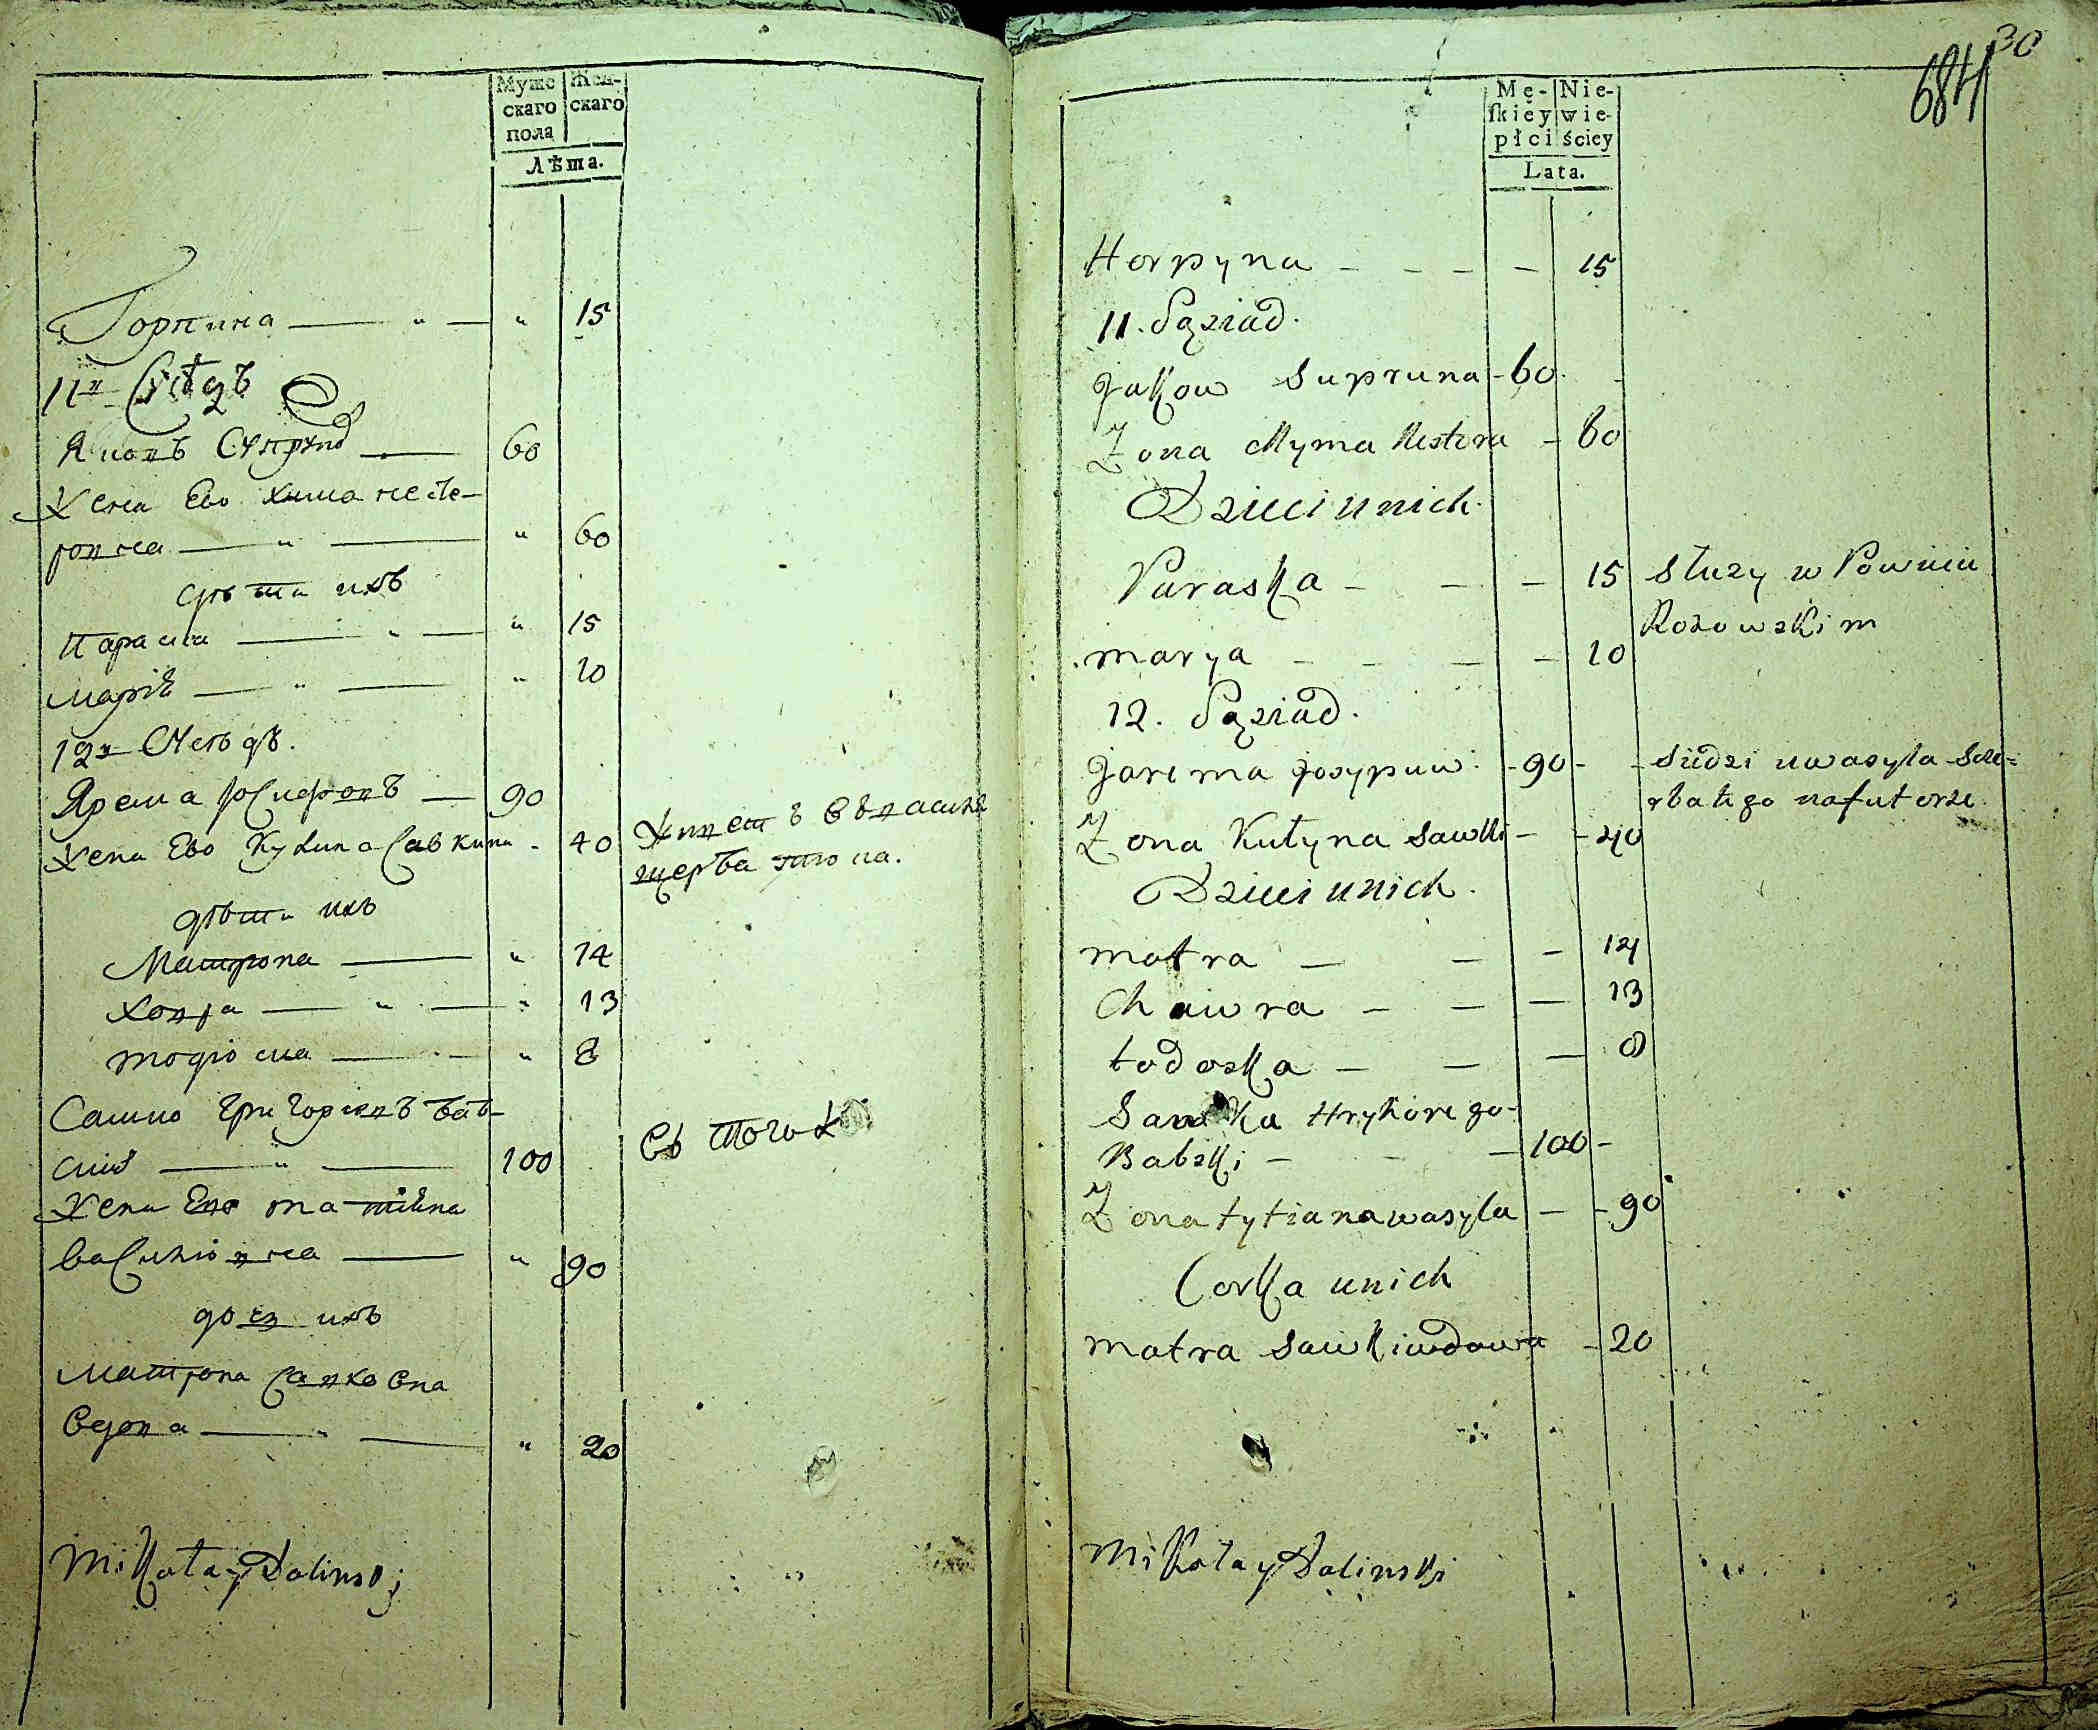 Муже Жен-
скаго скаго
пола
Лѣта.
Горпина — " — " 15
11й Сусѣдъ
Яковъ Супрунъ — 60
Жена Ево Хима несте-
ровна — " — " 60
дѣти ихъ
Параска — " — " 15
Марія — " — " 10
12й Сусѣдъ.
Ярема Іосифовъ — 90
Жена Ево Кулина Савкина - 40
Живетъ в Василя
щербатюка.
дѣти ихъ
Матрона — " 14
Хавра — " — " 13
тодіоска — " 8
Савко Григоріевъ баб-
скій — " — 100
Жена Ево татіяна
Василіовна — " 90
дочь ихъ
Матрона Савкова
Вдова — " — " 20
Mikołay Dolinskj
30
684
Mę- Nie-
skiey wie-
płci ściey
Lata.
Horpyna - - - - 15
11. Sąziad.
Jakow Supruna - 60 -
Zona Chyma Nestera - 60
Dzieci unich.
Paraska - - - 15 służy w Powiecie
Rozowskim
marya - - - - 10
12. Sąziad.
Jarema Josypuw - 90 - - siedzi uwasyla Scze-
rbatego nafutorze.
Zona Kulyna Sawki - - 40
Dzieci unich.
matra - - - 14
Chawra - - - 13
todoska - - - 8
Sawka Hryhorego-
Babski - - - 100 -
Zona tytiana wasyla - - 90
Corka unich
matra Sawki wdowa - 20
Mikołay Dolinskji